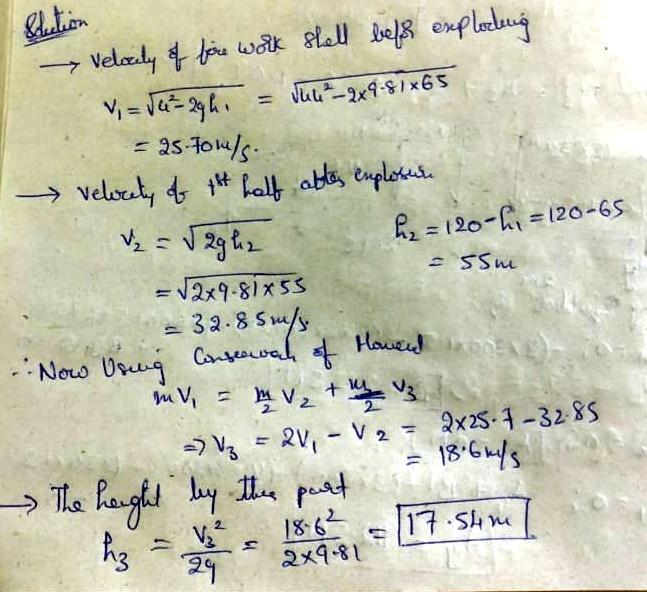 Solution
→ Velocity of fire work shell befr exploding
V₁ = √u²-2gh₁ = √44²-2×9.81×65
= 25.70m/s.
→ velocity of 1st half after explosion
V₂ = √2gh₂
h₂ = 120-h₁ = 120-65
= 55m
= √2×9.81×55
= 32.85m/s
∴ Now Using Conservah of
mV₁ = m/2 V₂ + m/2 V₃
⇒ V₃ = 2V₁ - V₂ = 2×25.7-32.85
= 18.6m/s
→ The height by this part
h₃ = V₃²/2g = 18.6²/2×9.81 = 17.54m